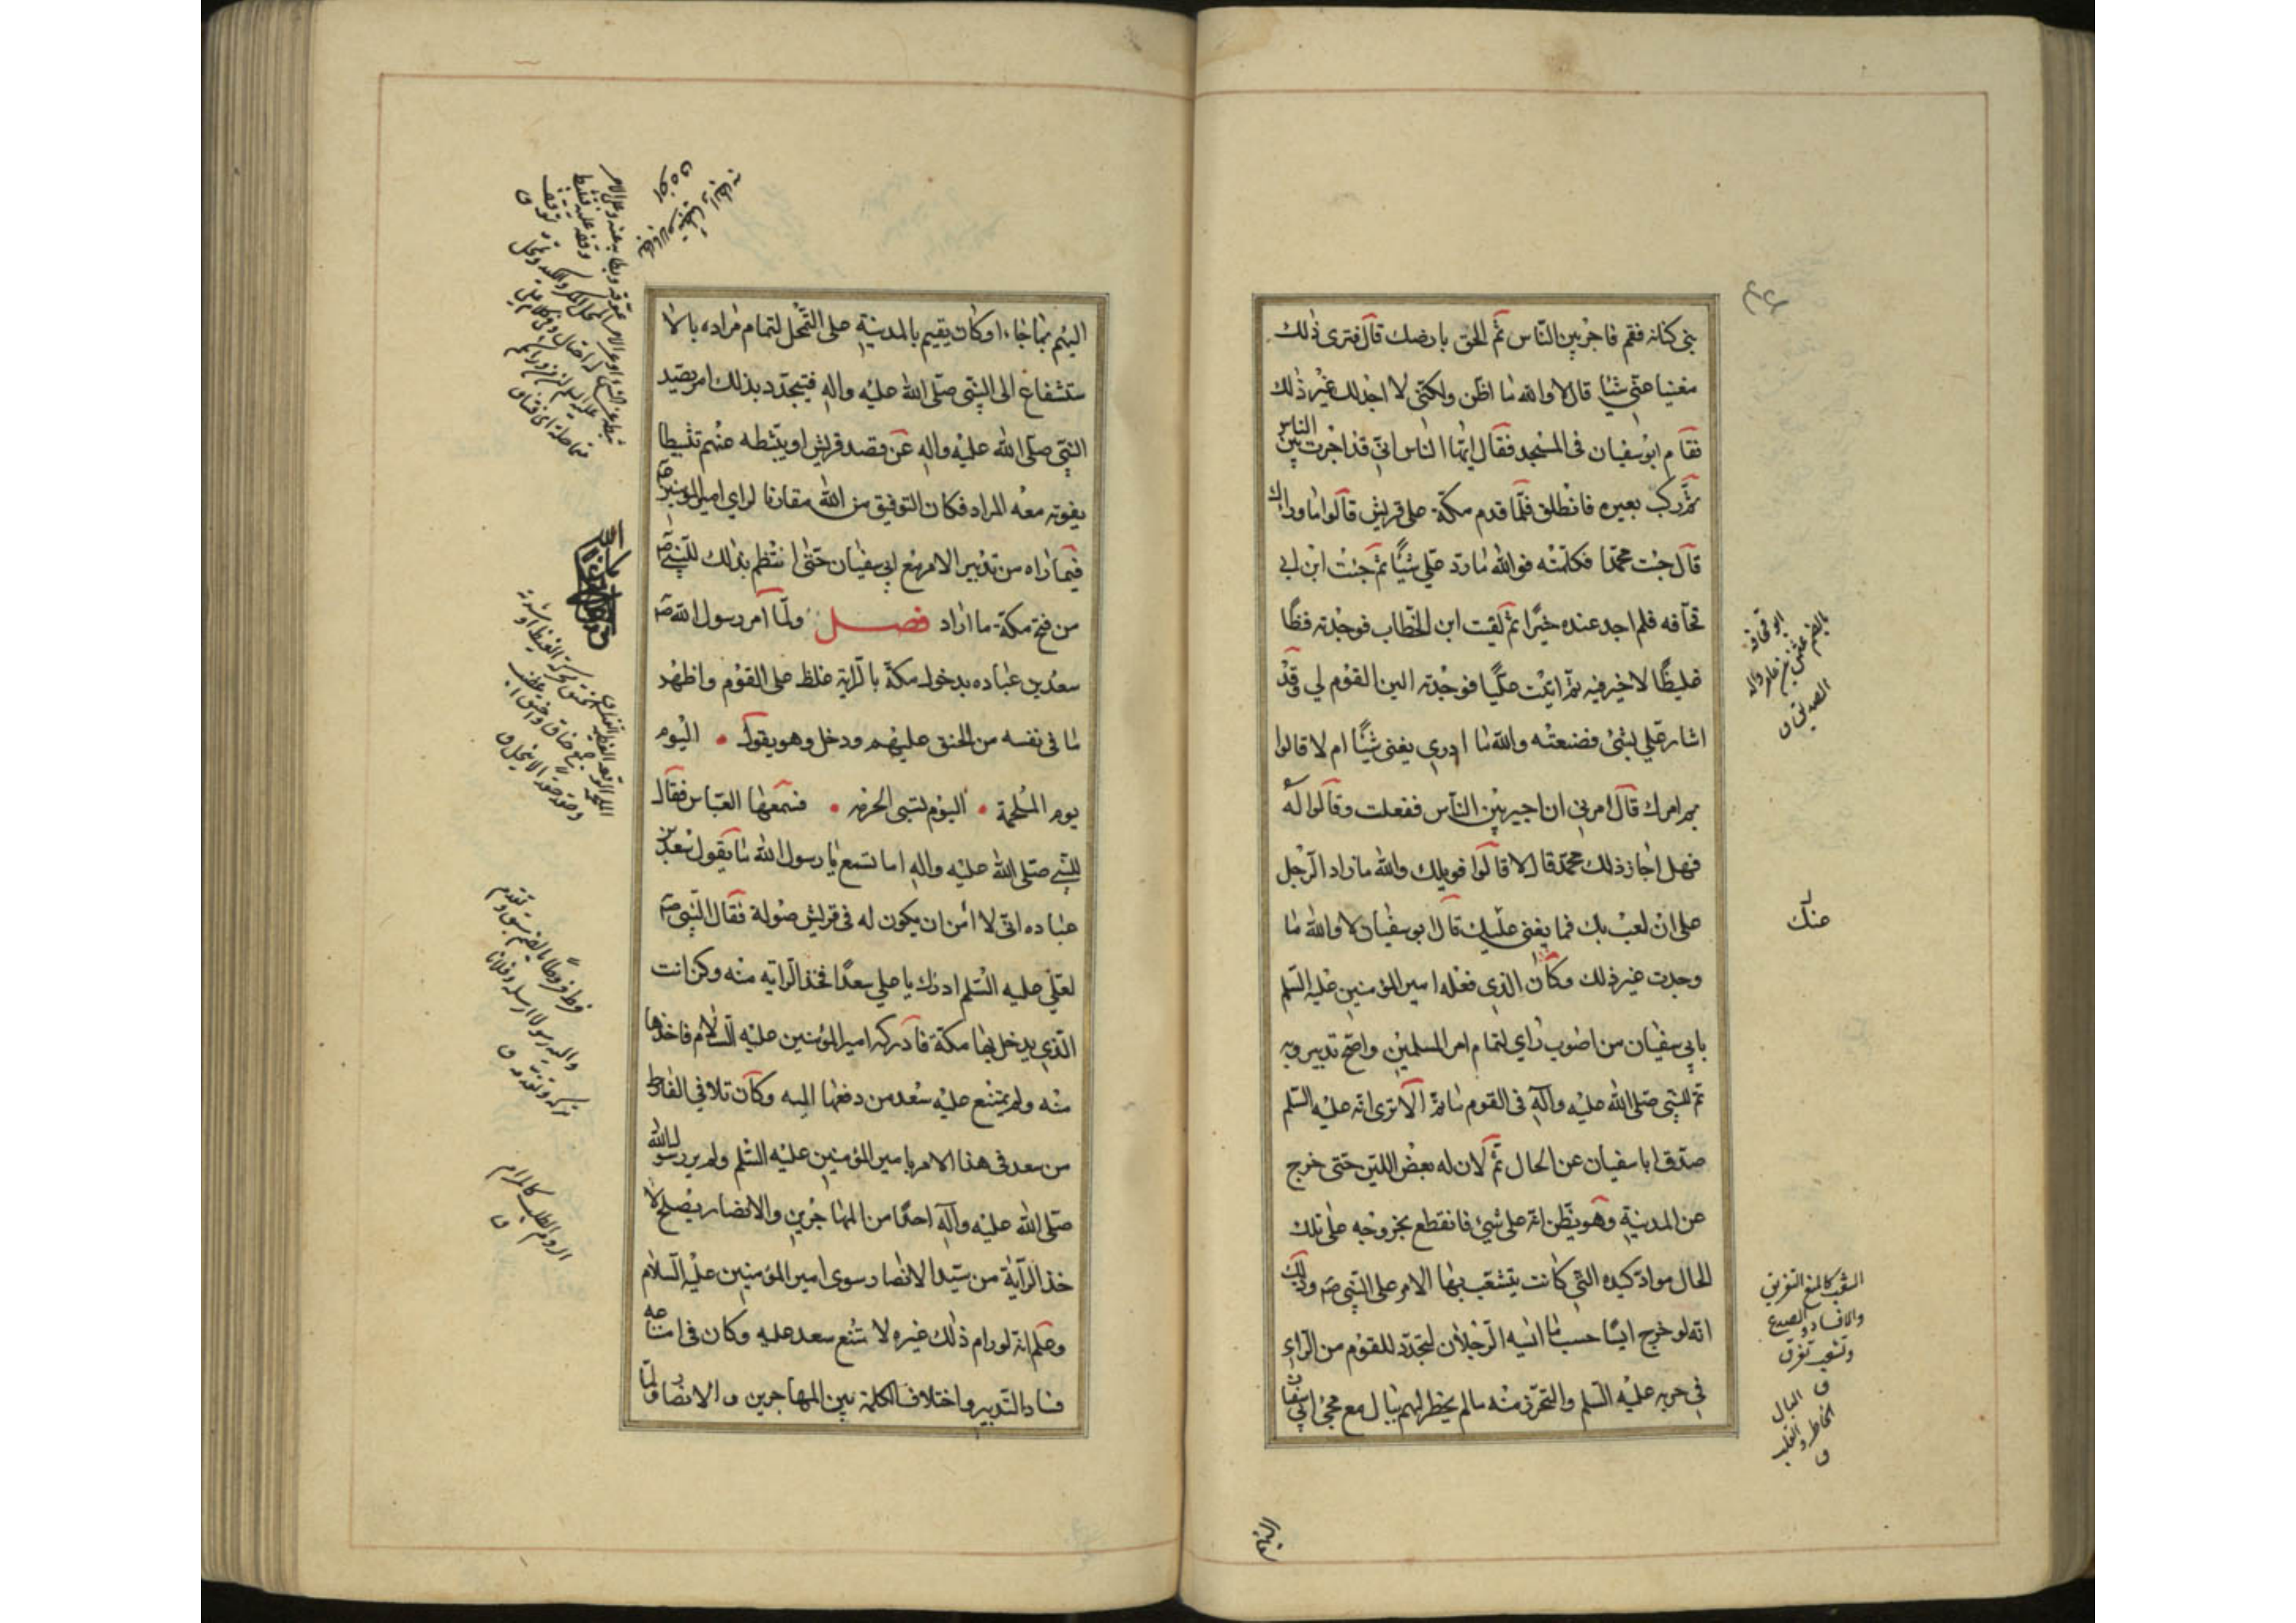 بنى كنانه فقم فاجر بين الناس ثم الحق بارضك قال فترى ذلك
مغنيا عنى شيئا قال لا والله ما اظن ولكنى لا اجد لك غير ذلك
فقام ابو سفيان فى المسجد فقال ايها الناس انى قد اجرت بين الناس
ثم ركب بعيره فانطلق فلما قدم مكة على قريش قالوا ما وراك
قال جئت محمدا فكلمته فوالله ما رد على شيئا ثم جئت ابن ابى
قحافه فلم اجد عنده خيرا ثم لقيت ابن الخطاب فوجدته فظا
غليظا لا خير فيه ثم اتيت عليا فوجدته الين القوم لي وقد
اشار على بشئ فصنعته والله ما ادرى يغنى شيئا ام لا قالوا
بم امرك قال امرنى ان اجير بين الناس ففعلت وقالوا له
فهل اجاز ذلك محمد قال لا قالوا فويلك والله ما زاد الرجل
على ان لعب بك فما يغنى عنك قال ابو سفيان لا والله ما
وجدت غير ذلك وكان الذى فعله امير المؤمنين عليه السلم
بابى سفيان من اصوب راى لتمام امر المسلمين واصح تدبير وبه
تم للنبى صلى الله عليه وآله فى القوم ما تم الا ترى انه عليه السلم
صدق ابا سفيان عن الحال ثم لان له بعض اللين حتى خرج
عن المدينة وهو يظن انه على شئ فانقطع بخروجه على تلك
الحال مواد كيده التى كانت يتشعب بها الامر على النبى صه وذلك
انه لو خرج ايسا حسب ما ايسه الرجلان لتجدد للقوم من الراى
فى حربه عليه السلم والتحرز منه ما لم يخطر لهم ببال مع مجئ ابى سفيان
ابو قحافة
بالضم عثمن بن عامر والد
الصديق ق
عنك
التشعب كالمنع التفريق
والافساد والصدع
وتشعب تفرق
ق
البال
الخاطر والقلب
ق
اليهم بما جاء او كان يقيم بالمدينة على التمحل لتمام مراده بالا
ستشفاع الى النبى صلى الله عليه واله فيتجدد بذلك امر يصيد
النبى صلى الله عليه واله عن قصد قريش او يثبطه عنهم تثبيطا
يفوته معه المراد فكان التوفيق من الله مقارنا لراى امير المؤمنين عه
فيما راه من تدبير الامر مع ابى سفيان حتى انتظم بذلك للنبى صه
من فتح مكة ما اراد فصل ولما امر رسول الله صه
سعد بن عباده بدخول مكة بالراية غلظ على القوم واظهر
ما فى نفسه من الحنق عليهم ودخل وهو يقول اليوم
يوم الملحمة اليوم تسبى الحرمه فسمعها العباس فقال
للنبى صلى الله عليه واله اما تسمع يا رسول الله ما يقول سعد بن
عباده انى لا آمن ان يكون له فى قريش صولة فقال النبى صه
لعلى عليه السلم ادرك يا على سعدا فخذ الراية منه وكن انت
الذى يدخل بها مكة فادركه امير المؤمنين عليه السلام فاخذها
منه ولم يمتنع عليه سعد من دفعها اليه وكان تلافى الفارط
من سعد فى هذا الامر بامير المؤمنين عليه السلم ولم ير رسول الله
صلى الله عليه وآله احدا من المهاجرين والانصار يصلح لا
خذ الراية من سيد الانصار سوى امير المؤمنين عليه السلام
وعلم انه لو رام ذلك غيره لامتنع سعد عليه وكان فى امتناعه
فساد التدبير واختلاف الكلمة بين المهاجرين والانصار ولما
فرط فروطا بالضم سبق وتقدم
واليه رسولا ارسله وفلانا
تركه وتقدمه ق
الروم الطلب كالمرام
ق